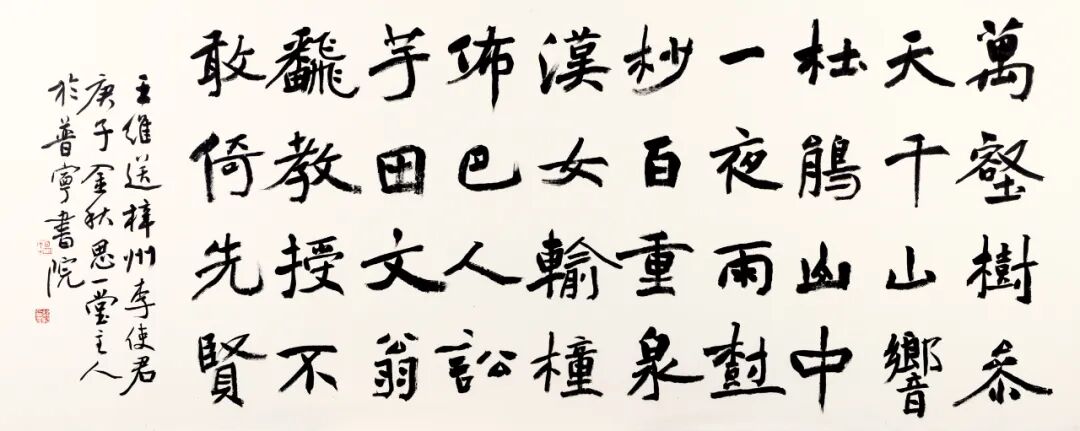 萬壑樹參
天千山響
杜鵑山中
一夜雨樹
杪百重泉
漢女輸橦
佈巴人訟
芋田文翁
飜教授不
敢倚先賢
王維送梓州李使君
庚子金秋思一堂主人
於普寧書院